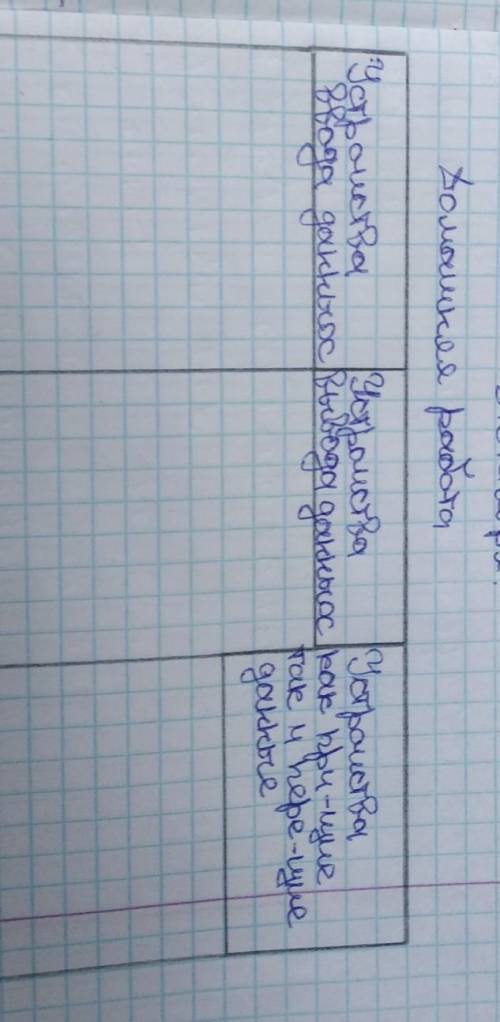 Домашняя работа
Устройства
ввода данных
Устройства
вывода данных
Устройства
как при-щие
так и пере-щие
данные